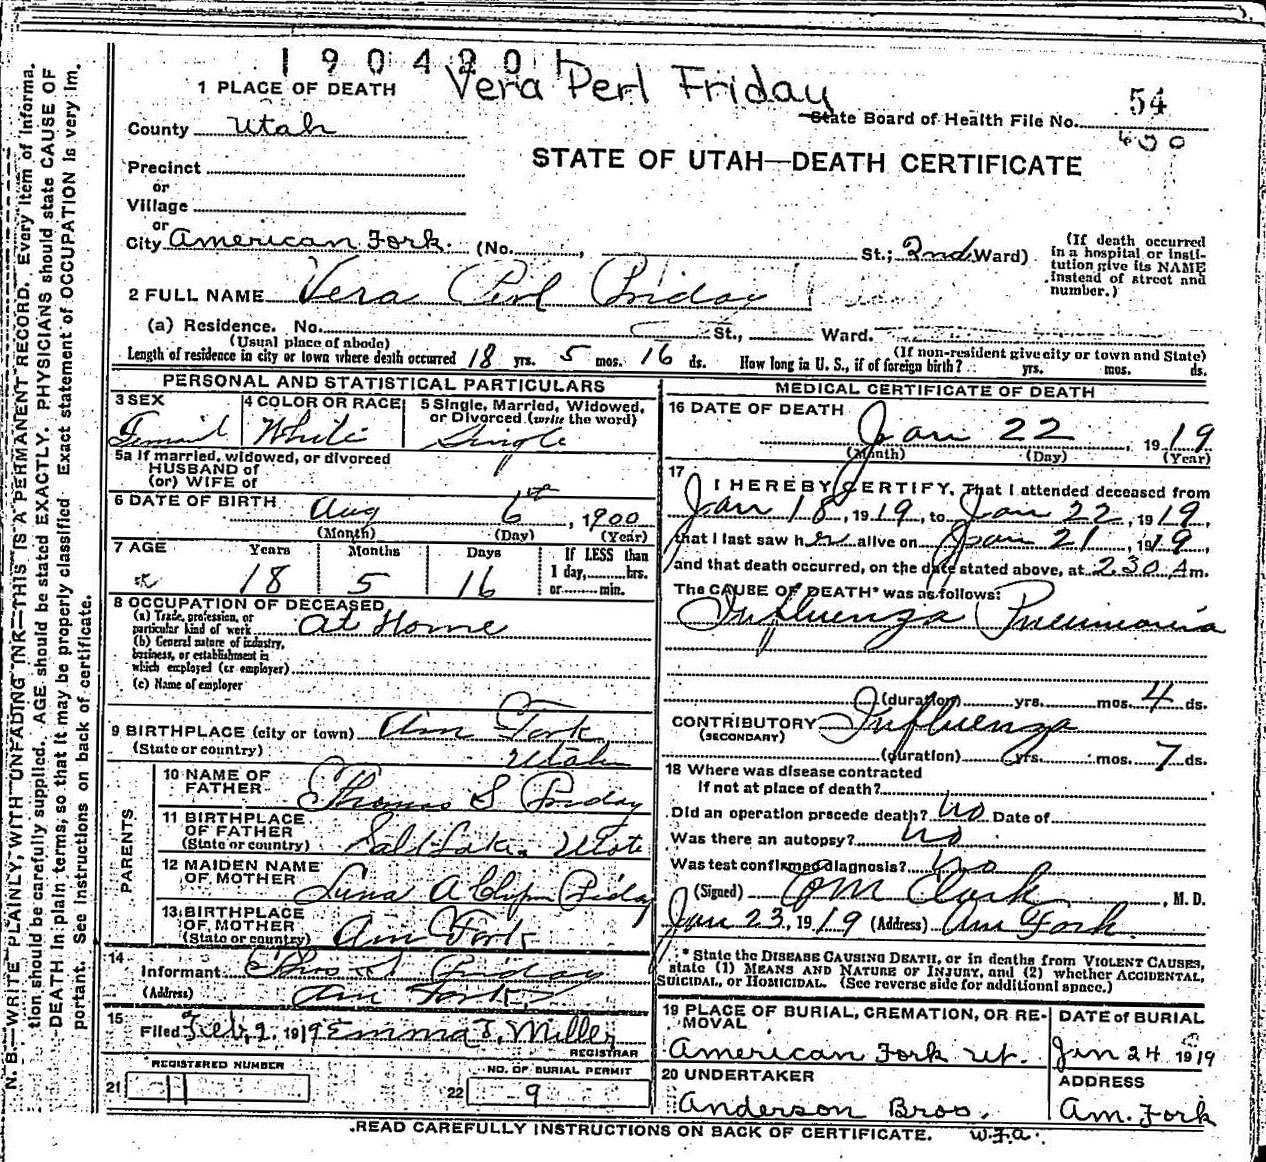 1904201
Vera Perl Friday
1 PLACE OF DEATH
State Board of Health File No. 54
400
County Utah
STATE OF UTAH—DEATH CERTIFICATE
Precinct
or
Village
or
City American Fork. (No. , St.; 2nd Ward)
(If death occurred in a hospital or institution give its NAME instead of street and number.)
2 FULL NAME Vera Perl Friday
(a) Residence. No. St., Ward.
(Usual place of abode) (If non-resident give city or town and State)
Length of residence in city or town where death occurred 18 yrs. 5 mos. 16 ds. How long in U. S., if of foreign birth? yrs. mos. ds.
PERSONAL AND STATISTICAL PARTICULARS
3 SEX 4 COLOR OR RACE 5 Single, Married, Widowed, or Divorced (write the word)
Femail White Single
5a If married, widowed, or divorced
HUSBAND of
(or) WIFE of
6 DATE OF BIRTH Aug 6th, 1900
(Month) (Day) (Year)
7 AGE Years Months Days If LESS than
1 day, hrs.
or min.
18 5 16
8 OCCUPATION OF DECEASED
(a) Trade, profession, or
particular kind of work At Home
(b) General nature of industry,
business, or establishment in
which employed (or employer)
(c) Name of employer
9 BIRTHPLACE (city or town) Am Fork
(State or country) Utah
PARENTS
10 NAME OF
FATHER Thomas S Friday
11 BIRTHPLACE
OF FATHER
(State or country) Salt Lake,
12 MAIDEN NAME
OF MOTHER A Friday
13 BIRTHPLACE
OF MOTHER
(State or country) Am Fork
14
Informant Thos S. Friday
(Address) Am Fork
15
Filed Feb, 2. 1919 Emma T. Miller
REGISTRAR
REGISTERED NUMBER NO. OF BURIAL PERMIT
21 11 22 9
MEDICAL CERTIFICATE OF DEATH
16 DATE OF DEATH
Jan 22, 1919
(Month) (Day) (Year)
17
I HEREBY CERTIFY, That I attended deceased from
Jan 18, 1919, to Jan 22, 1919,
that I last saw her alive on Jan 21, 1919,
and that death occurred, on the date stated above, at 2.30 Am.
The CAUSE OF DEATH* was as follows:
Influenza Pneumonia
(duration) yrs. mos. 4 ds.
CONTRIBUTORY Influenza
(SECONDARY)
(duration) yrs. mos. 7 ds.
18 Where was disease contracted
If not at place of death?
Did an operation precede death? No Date of
Was there an autopsy? No.
Was test confirmed diagnosis? No
(Signed) Clark, M. D.
Jan 23, 1919 (Address) Am Fork.
* State the DISEASE CAUSING DEATH, or in deaths from VIOLENT CAUSES,
state (1) MEANS AND NATURE OF INJURY, and (2) whether ACCIDENTAL,
SUICIDAL, or HOMICIDAL. (See reverse side for additional space.)
19 PLACE OF BURIAL, CREMATION, OR RE-
MOVAL DATE of BURIAL
American Fork Ut. Jan 24 1919
20 UNDERTAKER ADDRESS
Anderson Bros. Am. Fork
.READ CAREFULLY INSTRUCTIONS ON BACK OF CERTIFICATE. W.F.A.
N. B.—WRITE PLAINLY, WITH UNFADING INK—THIS IS A PERMANENT RECORD. Every item of informa-
tion should be carefully supplied. AGE should be stated EXACTLY. PHYSICIANS should state CAUSE OF
DEATH in plain terms, so that it may be properly classified Exact statement of OCCUPATION is very im-
portant. See instructions on back of certificate.